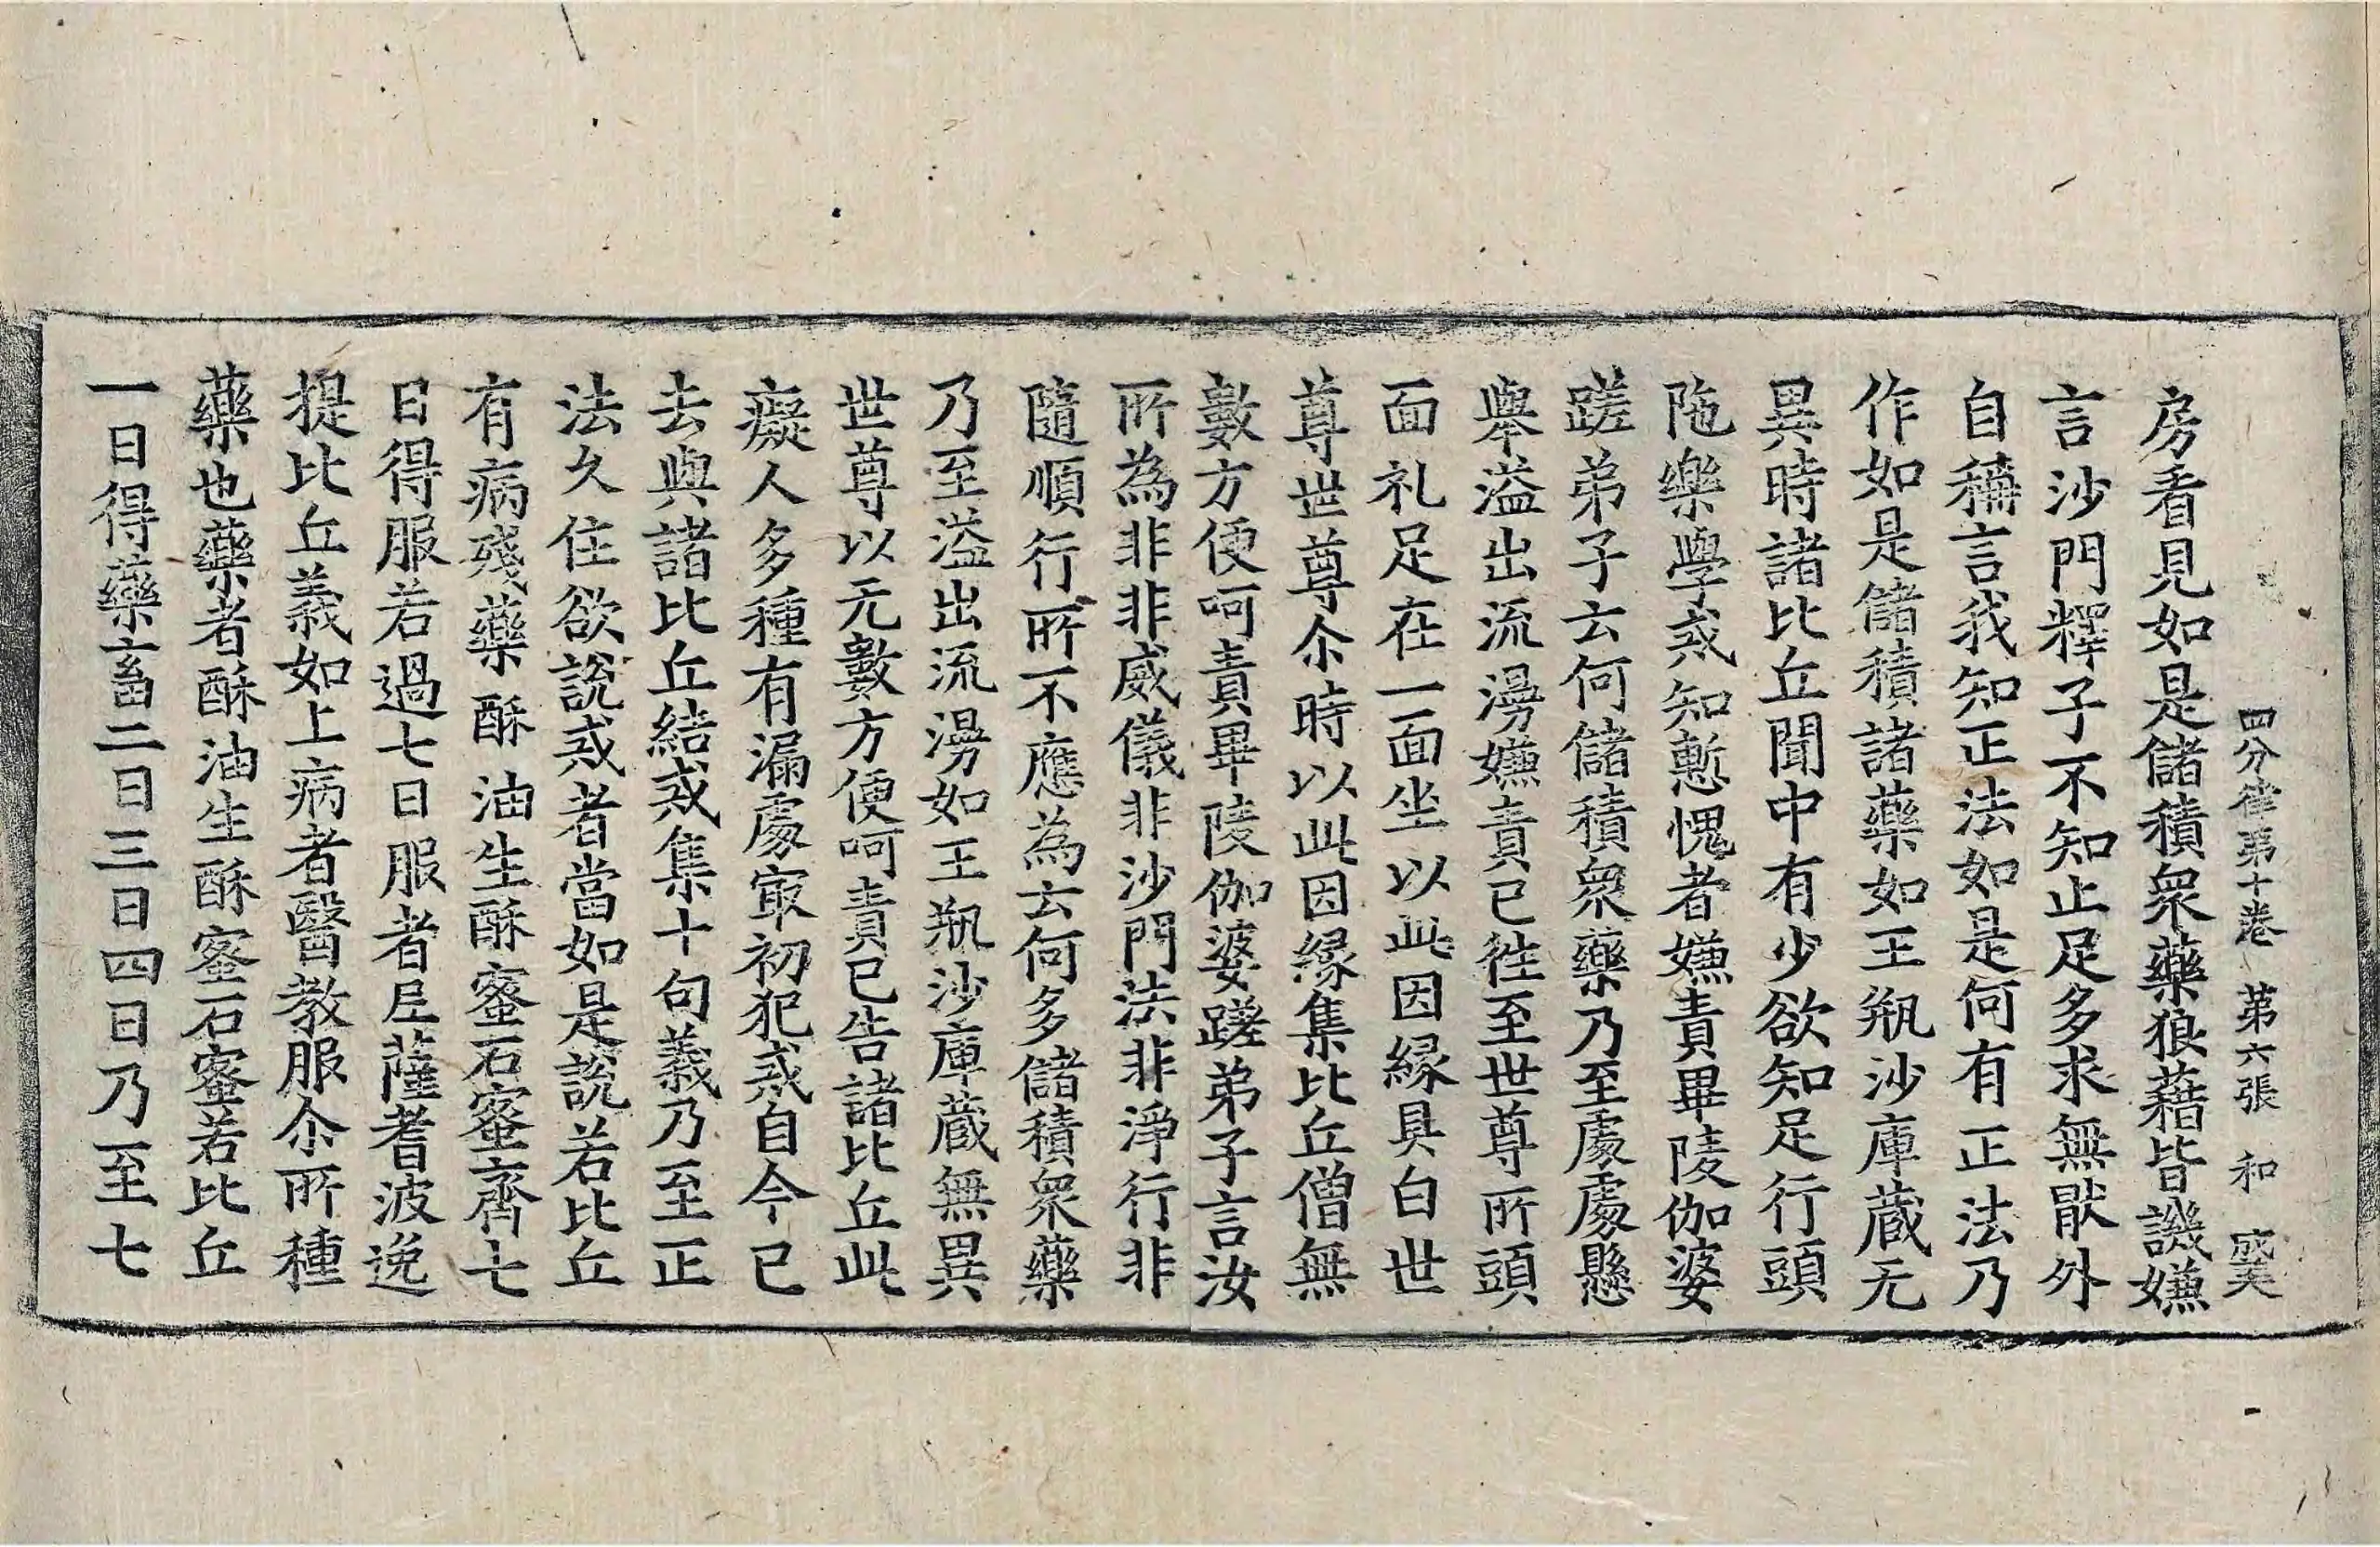 四分律第十卷 第六張 和
房看見如是儲積衆藥狼藉皆譏嫌
言沙門釋子不知止足多求無猒外
自稱言我知正法如是何有正法乃
作如是儲積諸藥如王瓶沙庫蔵无
異時諸比丘聞中有少欲知足行頭
陁樂學戒知慙愧者嫌責畢陵伽婆
蹉弟子云何儲積衆藥乃至處處懸
舉溢出流漫嫌責已徃至世尊所頭
面礼足在一面坐以此因緣具白世
尊世尊尒時以此因緣集比丘僧無
數方便呵責畢陵伽婆蹉弟子言汝
所為非非威儀非沙門法非淨行非
隨順行所不應為云何多儲積衆藥
乃至溢出流漫如王瓶沙庫蔵無異
世尊以无數方便呵責已告諸比丘此
癡人多種有漏處㝡初犯戒自今已
去與諸比丘結戒集十句義乃至正
法久住欲說戒者當如是說若比丘
有病殘藥酥油生酥蜜石蜜齊七
日得服若過七日服者尼薩耆波逸
提比丘義如上病者醫教服尒所種
藥也藥者酥油生酥蜜石蜜若比丘
一日得藥畜二日三日四日乃至七